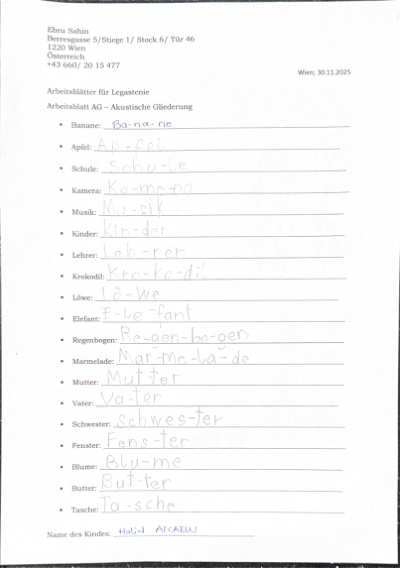 Ebru Sahin
Berresgasse 5/Stiege 1/ Stock 6/ Tür 46
1220 Wien
Österreich
+43 660/ 20 15 477
Wien, 30.11.2025
Arbeitsblätter für Legastenie
Arbeitsblatt AG – Akustische Gliederung
• Banane: Ba-na-ne
• Apfel: Ap-fel
• Schule: Schu-le
• Kamera: Ka-me-ra
• Musik: Mu-sik
• Kinder: Kin-der
• Lehrer: Leh-rer
• Krokodil: Kro-ko-dil
• Löwe: Lö-we
• Elefant: E-le-fant
• Regenbogen: Re-gen-bo-gen
• Marmelade: Mar-me-la-de
• Mutter: Mut-ter
• Vater: Va-ter
• Schwester: Schwes-ter
• Fenster: Fens-ter
• Blume: Blu-me
• Butter: But-ter
• Tasche: Ta-sche
Name des Kindes: Halid